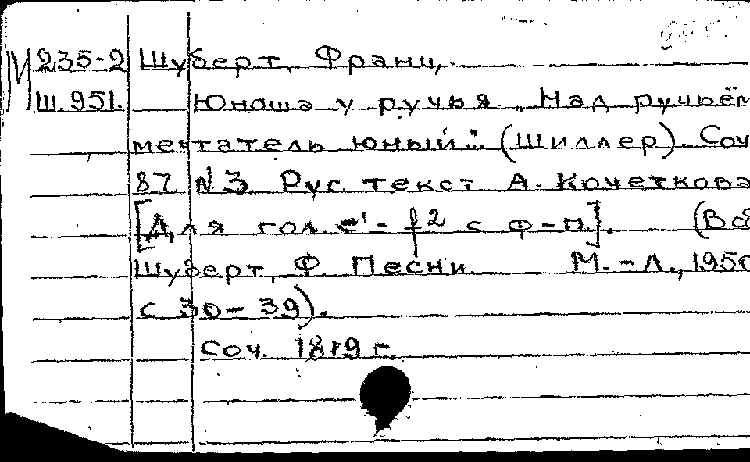 М 235-2 Шуберт, Франц.
Ш.951. Юноша у ручья „Над ручьём
мечтатель юный". (Шиллер). Соч
87 №3. Рус. текст А. Кочеткова
[Для гол. e'- f2 с ф-п.]. (В об
Шуберт, Ф. Песни М.-Л., 1950
с 30-39).
Соч. 1819 г.